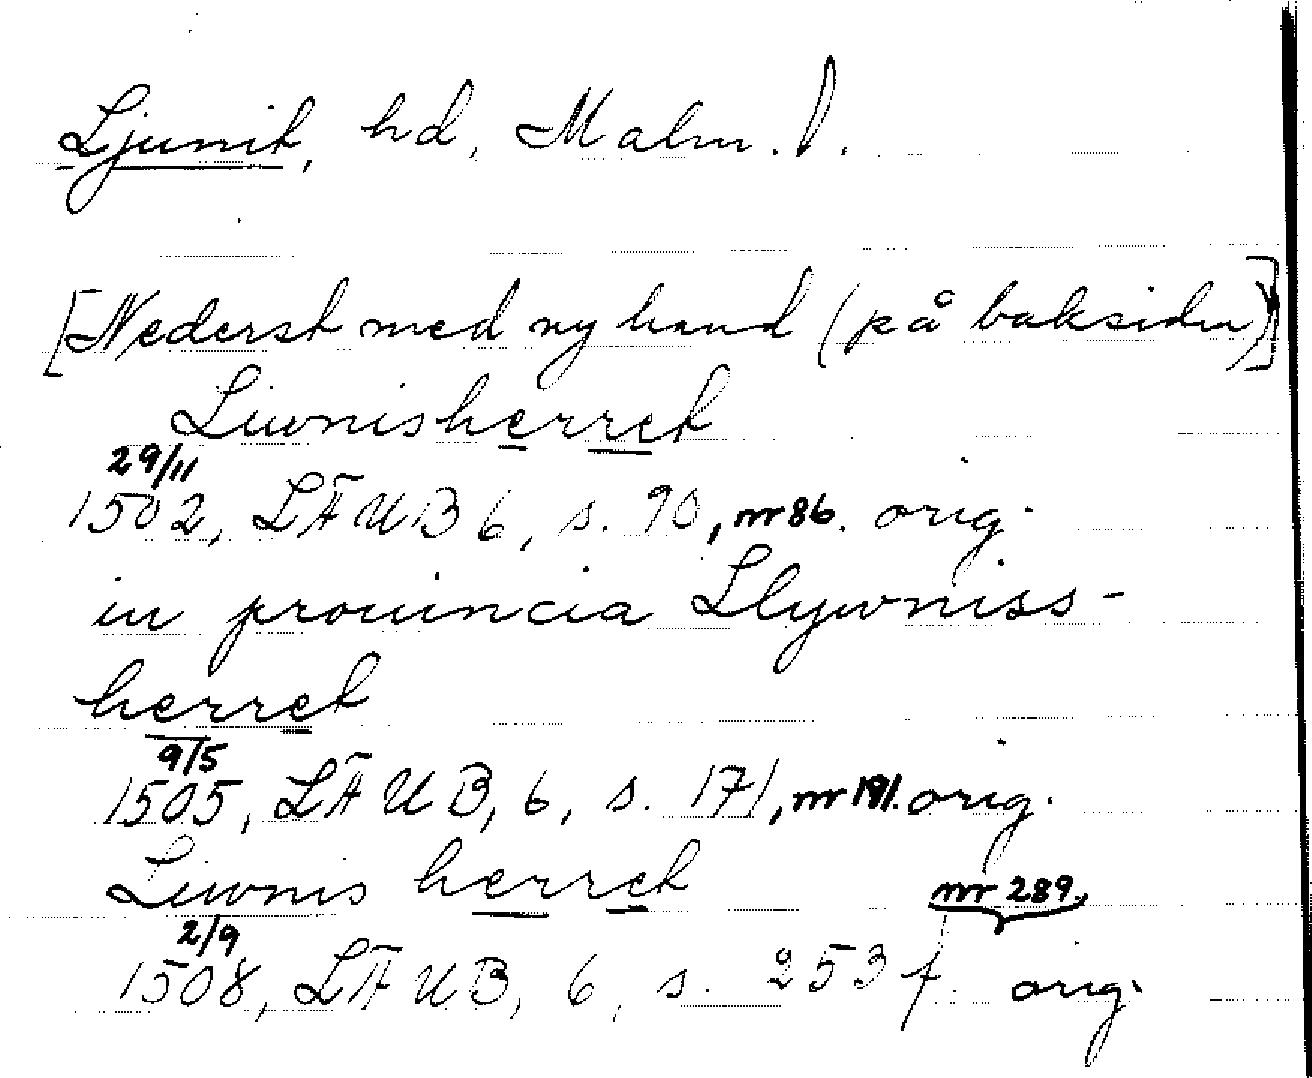 Ljunit, hd, Malm. l.
[Nederst med ny hand (på baksidan)]
Liwnisherret
29/11
1502, LÄUB 6, s. 90, nr 86. orig.
in prouincia Llywniss-
herret
9/5
1505, LÄUB, 6, s. 171, nr 191. orig.
Liwnis herret
nr 289,
2/9
1508, LÄUB, 6, s. 253 f. orig.